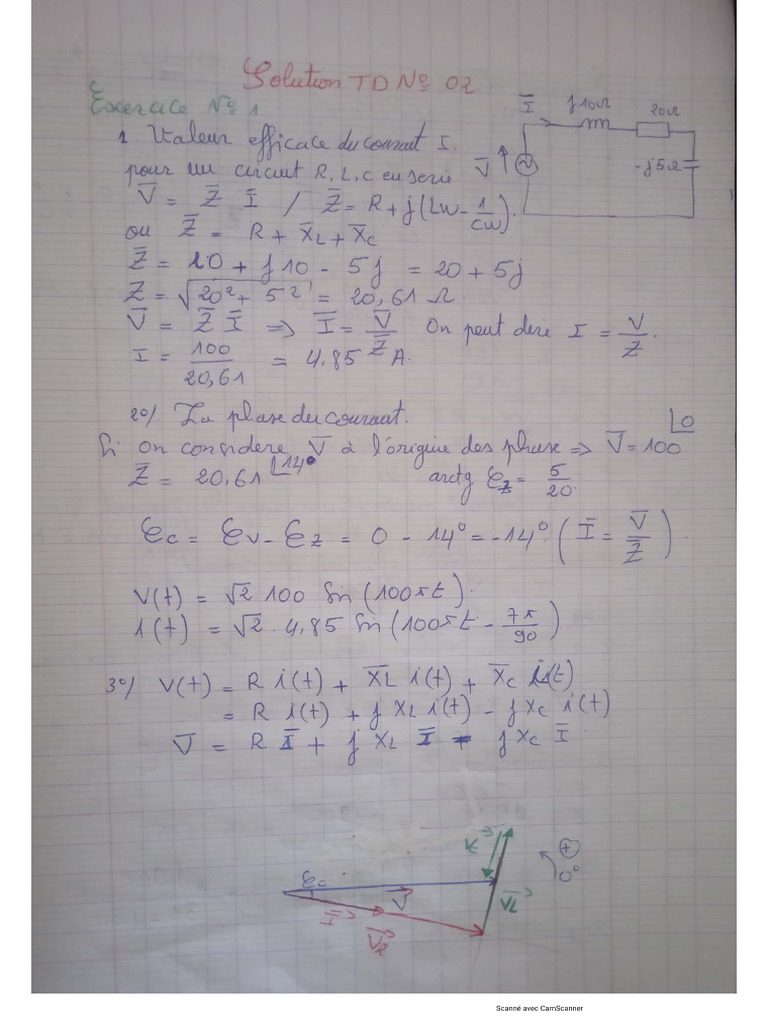 Solution TD N° 02
Exercice N° 1
1. Valeur efficace du courant I.
pour un circuit R, L, C en serie
V̅ = Z̅ I̅ / Z̅ = R + j(Lw - 1/Cw).
ou Z̅ = R + X̅L + X̅C
Z̅ = 20 + j10 - 5j = 20 + 5j
Z = √(20² + 5²) = 20,61 Ω.
V̅ = Z̅ I̅ ⇒ I̅ = V̅/Z̅ On peut dire I = V/Z.
I = 100/20,61 = 4,85 A.
I̅
j10Ω
20Ω
V̅
-j5Ω
2°/ La phase du courant.
Si on considere V̅ à l'origine des phase ⇒ V̅ = 100 ⌊0
Z̅ = 20,61 ⌊14° arctg φz = 5/20
φc = φv - φz = 0 - 14° = -14° (I̅ = V̅/Z̅).
V(t) = √2 100 Sin(100πt)
i(t) = √2 4,85 Sin(100πt - 7π/90)
3°/ V(t) = R i(t) + X̅L i(t) + X̅C i(t)
= R i(t) + j XL i(t) - j XC i(t)
V̅ = R I̅ + j XL I̅ - j XC I̅
φc
V
I
VR
VL
+
0°
Scanné avec CamScanner